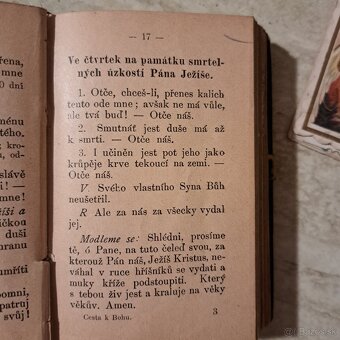 řena,
mne
0 dní
ménu
tého.
kro-
odi-
slávě
! —
íši a
ičkou
uranu
umříti
pomni,
patruj
svůj!
— 17 —
Ve čtvrtek na památku smrtel-
ných úzkostí Pána Ježíše.
1. Otče, chceš-li, přenes kalich
tento ode mne; avšak ne má vůle,
ale tvá buď! — Otče náš.
2. Smutnáť jest duše má až
k smrti. — Otče náš.
3. I učiněn jest pot jeho jako
krůpěje krve tekoucí na zemi. —
Otče náš.
V. Svého vlastního Syna Bůh
neušetřil.
R Ale za nás za všecky vydal
jej.
Modleme se: Shlédni, prosíme
tě, ó Pane, na tuto čeleď svou, za
kterouž Pán náš, Ježíš Kristus, ne-
váhal v ruce hříšníků se vydati a
muky kříže podstoupiti. Který
s tebou živ jest a kraluje na věky
věkův. Amen.
Cesta k Bohu.
3